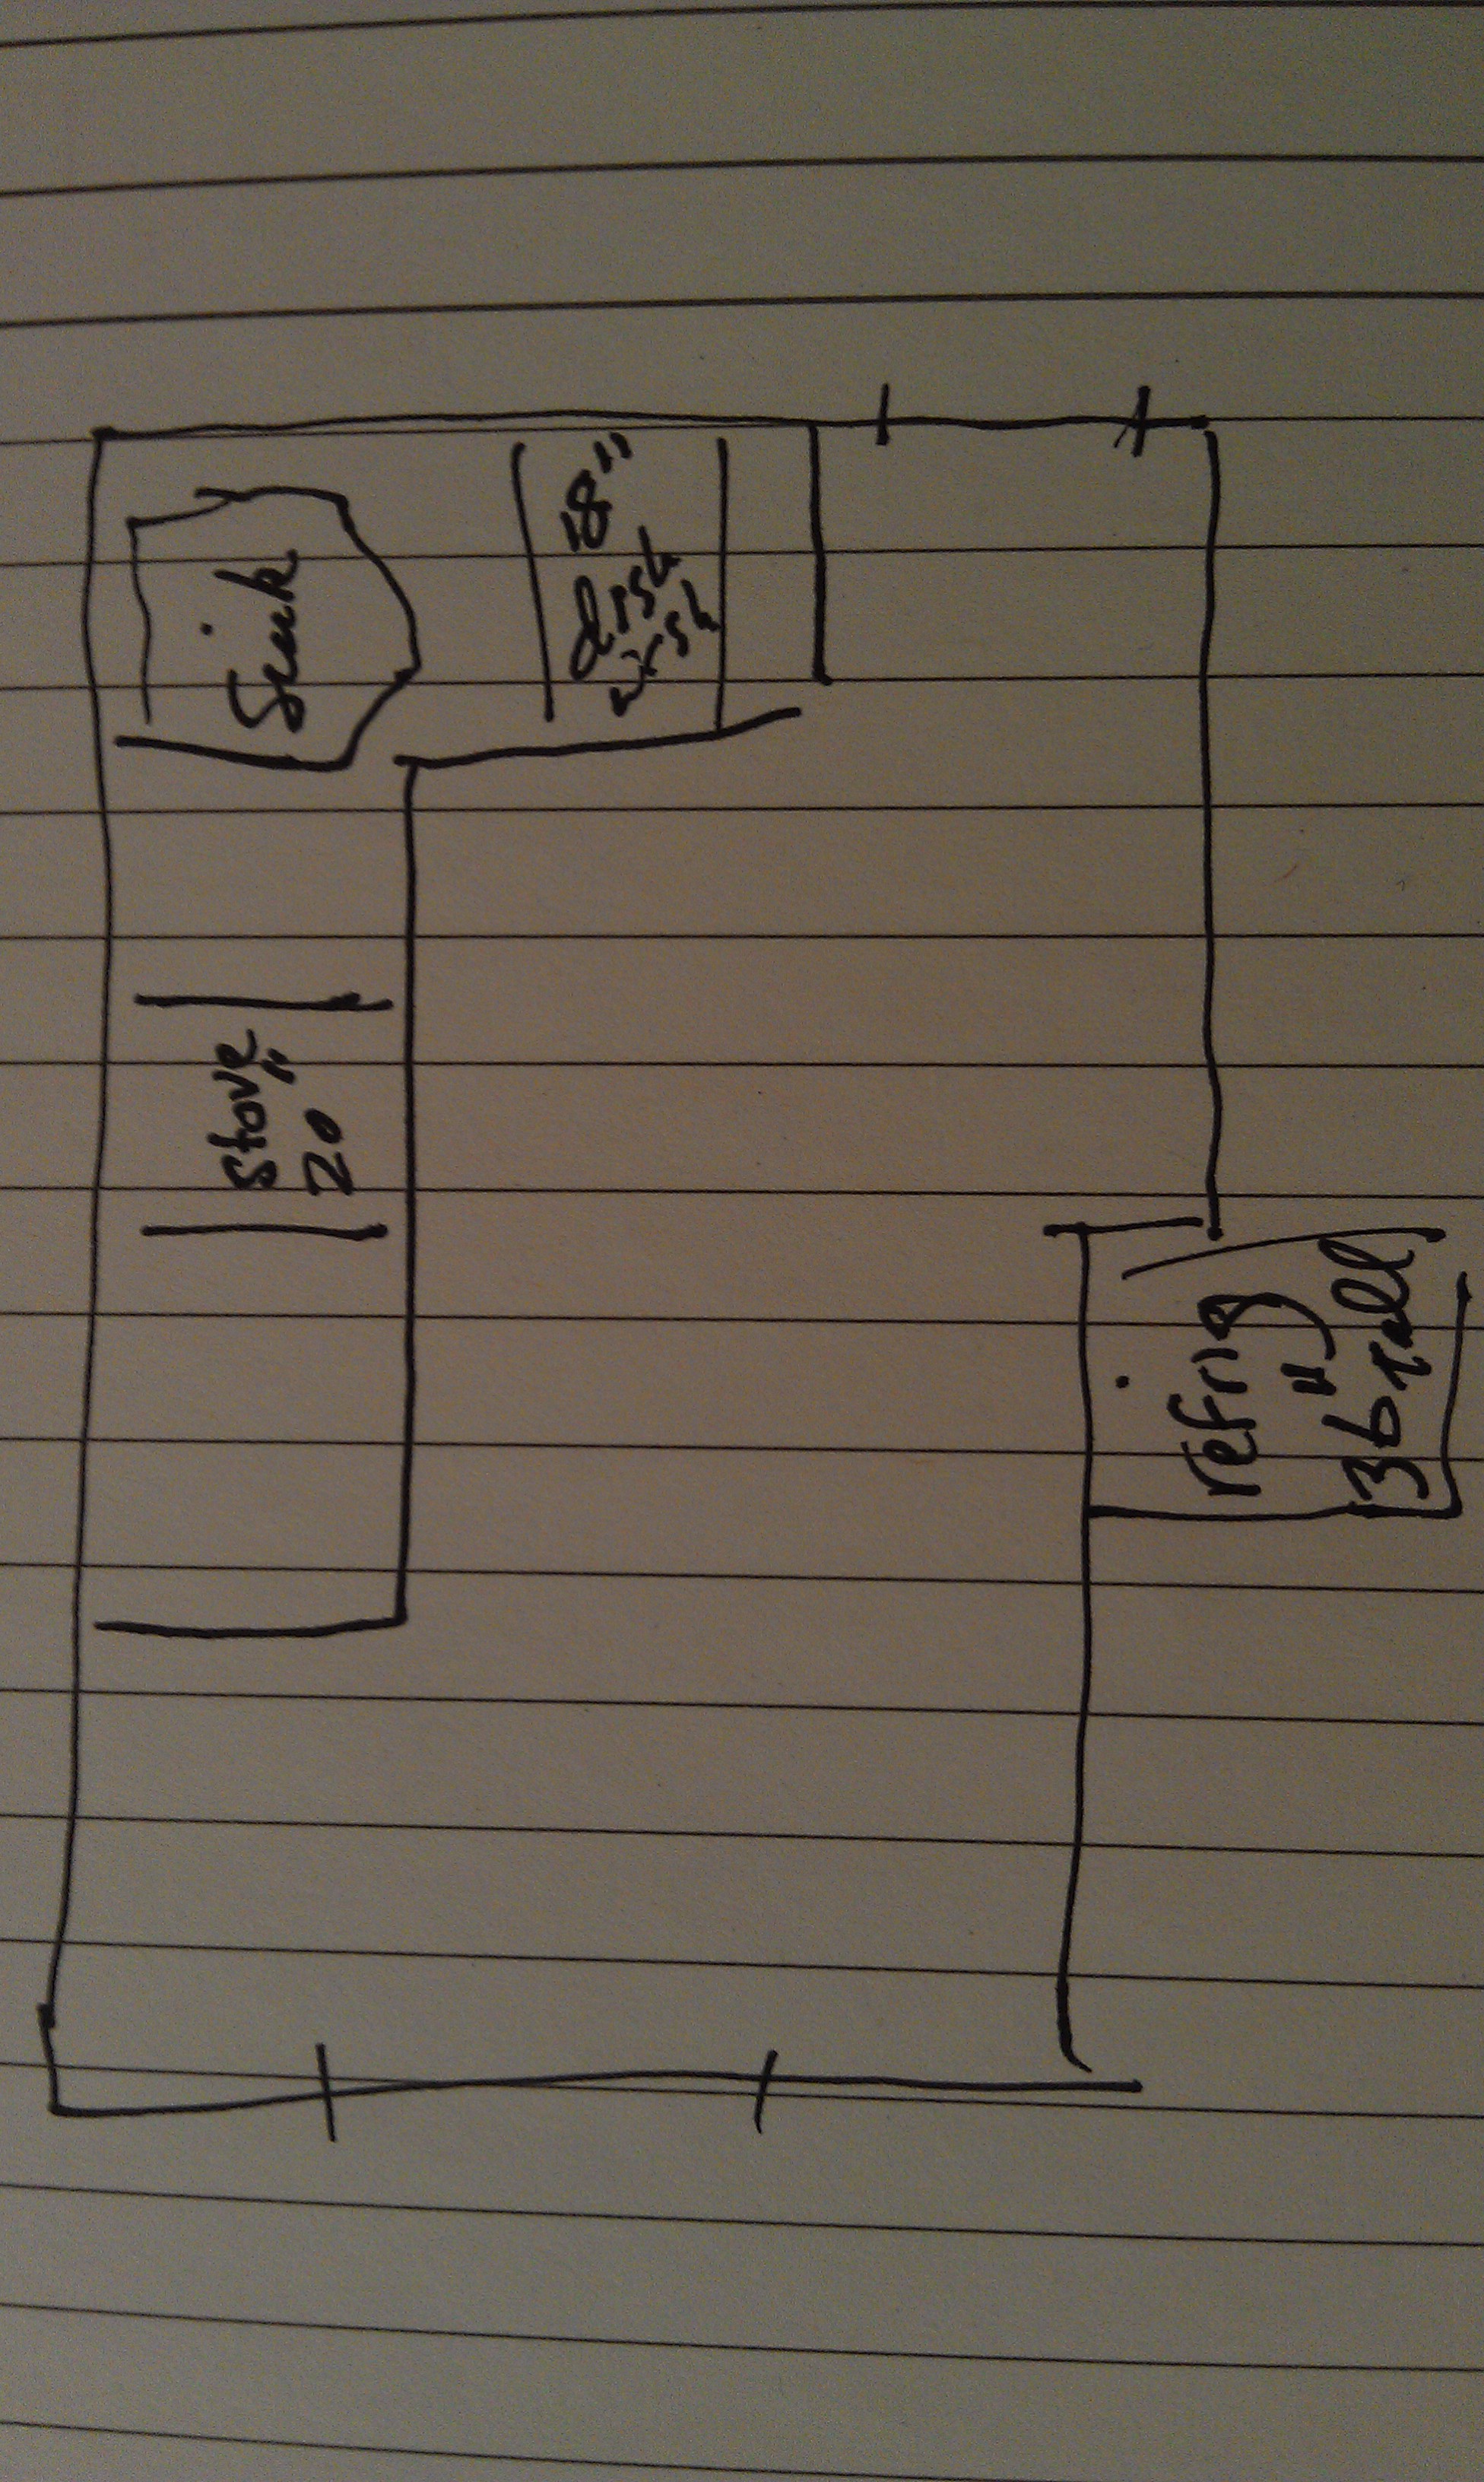 Sink
18"
dish
wash
stove
20"
refrig
36" tall